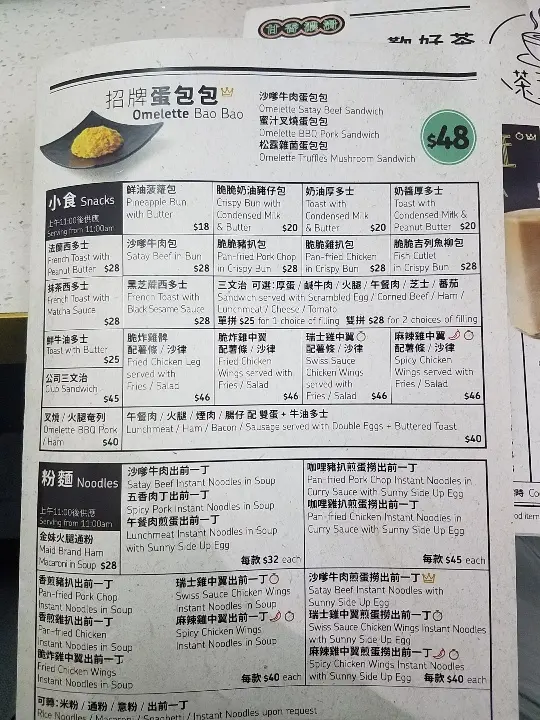 歡好茶
招牌蛋包包
Omelette Bao Bao
沙嗲牛肉蛋包包
Omelette Satay Beef Sandwich
蜜汁叉燒蛋包包
Omelette BBQ Pork Sandwich
松露雜菌蛋包包
Omelette Truffles Mushroom Sandwich
$48
小食 Snacks
上午11:00後供應
Serving from 11:00am
鮮油菠蘿包
Pineapple Bun
with Butter
$18
脆脆奶油豬仔包
Crispy Bun with
Condensed Milk
& Butter $20
奶油厚多士
Toast with
Condensed Milk
& Butter $20
奶醬厚多士
Toast with
Condensed Milk &
Peanut Butter $20
法蘭西多士
French Toast with
Peanut Butter $28
沙嗲牛肉包
Satay Beef in Bun
$28
脆脆豬扒包
Pan-fried Pork Chop
in Crispy Bun $28
脆脆雞扒包
Pan-fried Chicken
in Crispy Bun $28
脆脆吉列魚柳包
Fish Cutlet
in Crispy Bun $28
抹茶西多士
French Toast with
Matcha Sauce
$28
黑芝麻西多士
French Toast with
Black Sesame Sauce
$28
三文治 可選：厚蛋 / 鹹牛肉 / 火腿 / 午餐肉 / 芝士 / 番茄
Sandwich served with Scrambled Egg / Corned Beef / Ham /
Lunchmeat / Cheese / Tomato
單拼 $25 for 1 choice of filling 雙拼 $28 for 2 choices of filling
鮮牛油多士
Toast with Butter
$25
公司三文治
Club Sandwich
$45
脆炸雞髀
配薯條 / 沙律
Fried Chicken Leg
served with
Fries / Salad
$46
脆炸雞中翼
配薯條 / 沙律
Fried Chicken
Wings served with
Fries / Salad
$46
瑞士雞中翼
配薯條 / 沙律
Swiss Sauce
Chicken Wings
served with
Fries / Salad $46
麻辣雞中翼
配薯條 / 沙律
Spicy Chicken
Wings served with
Fries / Salad
$46
叉燒 / 火腿奄列
Omelette BBQ Pork
/ Ham $40
午餐肉 / 火腿 / 煙肉 / 腸仔 配 雙蛋 + 牛油多士
Lunchmeat / Ham / Bacon / Sausage served with Double Eggs + Buttered Toast
$40
粉麵 Noodles
上午11:00後供應
Serving from 11:00am
金妹火腿通粉
Maid Brand Ham
Macaroni in Soup $28
沙嗲牛肉出前一丁
Satay Beef Instant Noodles in Soup
五香肉丁出前一丁
Spicy Pork Instant Noodles in Soup
午餐肉煎蛋出前一丁
Lunchmeat Instant Noodles in Soup
with Sunny Side Up Egg
每款 $32 each
咖哩豬扒煎蛋撈出前一丁
Pan-fried Pork Chop Instant Noodles in
Curry Sauce with Sunny Side Up Egg
咖哩雞扒煎蛋撈出前一丁
Pan-fried Chicken Instant Noodles in
Curry Sauce with Sunny Side Up Egg
每款 $45 each
香煎豬扒出前一丁
Pan-fried Pork Chop
Instant Noodles in Soup
香煎雞扒出前一丁
Pan-fried Chicken
Instant Noodles in Soup
脆炸雞中翼出前一丁
Fried Chicken Wings
Instant Noodles in Soup
瑞士雞中翼出前一丁
Swiss Sauce Chicken Wings
Instant Noodles in Soup
麻辣雞中翼出前一丁
Spicy Chicken Wings
Instant Noodles in Soup
每款 $40 each
沙嗲牛肉煎蛋撈出前一丁
Satay Beef Instant Noodles with
Sunny Side Up Egg
瑞士雞中翼煎蛋撈出前一丁
Swiss Sauce Chicken Wings Instant Noodles
with Sunny Side Up Egg
麻辣雞中翼煎蛋撈出前一丁
Spicy Chicken Wings Instant Noodles
with Sunny Side Up Egg 每款 $40 each
可轉：米粉 / 通粉 / 意粉 / 出前一丁
Rice Noodles / Macaroni / Spaghetti / Instant Noodles upon request